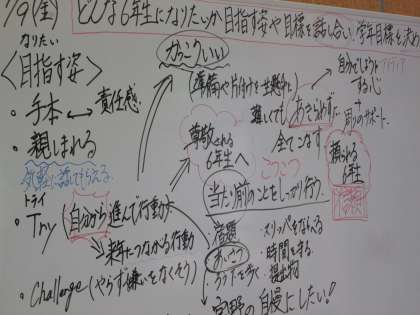 7/9(金)
どんな6年生になりたいか目指す姿や目標を話し合い、学年目標を決め
なりたい
<目指す姿>
かっこいい
(準備や片付けを一生懸命に)
・手本 ↔ 責任感
・親しまれる
気軽に話してもらえる
トライ
・Try (自分から進んで行動
来年につながる行動
・Challenge (やらず嫌いをなくそう)
尊敬される
6年生へ
難しくてもあきらめずに
全てこなす
自分で
する心
+
周りのサポート
頼られる
6年生
こつこつ
当たり前のことをしっかり行う
・宿題
・あいさつ
・ろう下を歩く
・スリッパをならべる
・時間を守る
・提出物
の自慢にしたい!